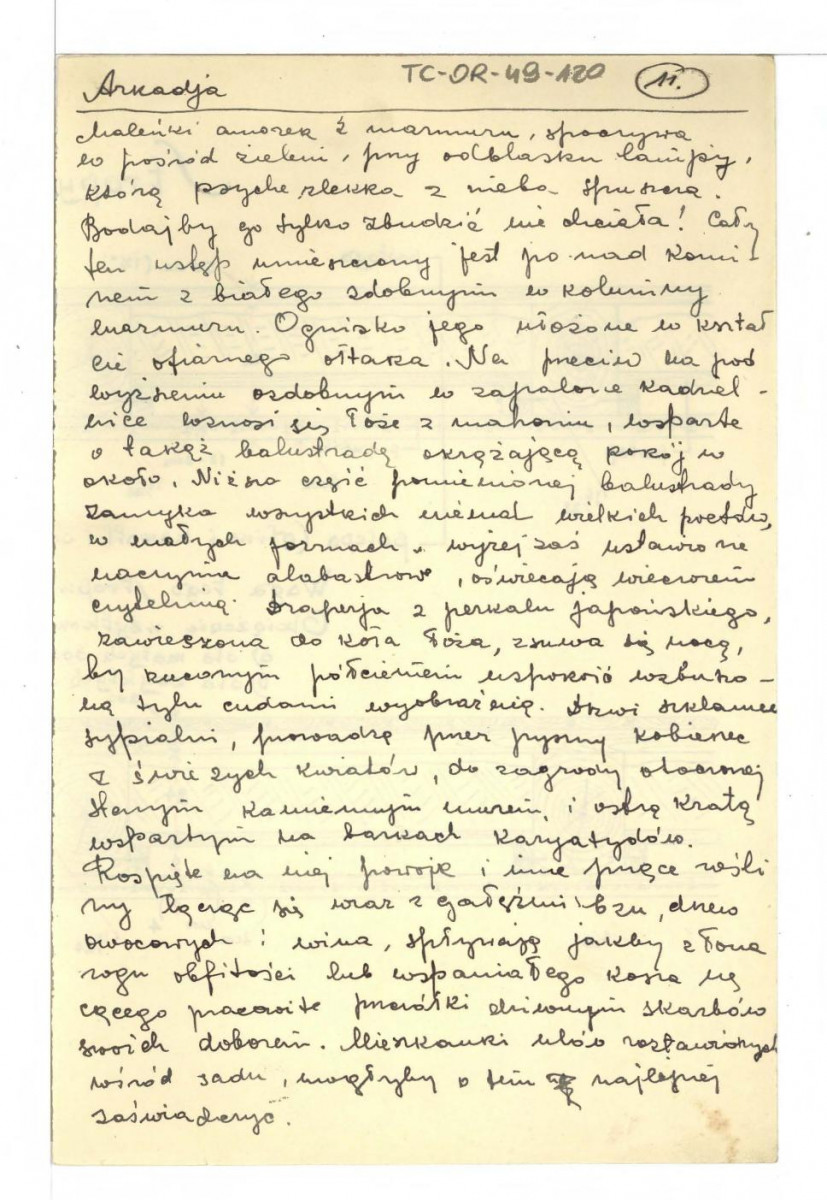 TC-OR-49-120
11.
Arkadja
Maleński amorek z marmuru, spoczywa
w pośród zieleni, przy odblasku lampy,
którą psyche zlekka z nieba spuszcza.
Bodajby go tylko zbudzić nie chciała! Cały
ten ustęp umieszczony jest po nad komi-
nem z białego zdobnym w kolumny
marmuru. Ognisko jego ułożone w kształ
cie ofiarnego ołtarza. Na przeciw na pod
wyższeniu ozdobnym w zapalone kadziel-
nice wznosi się łoże z mahoniu, wsparte
o takąż balustradę okrążającą pokój w
około. Niższa część pomienionej balustrady
zamyka wszystkich niemal wielkich poetów,
w małych formach, wyżej zaś ustawione
naczynia alabastrowe, oświecają wieczorem
czytelnię. Draperja z perkalu japońskiego,
zawieszona do koła łoża, zsuwa się nocą,
by rzuconym półcieniem uspokoić wzburzo-
ną tylu cudami wyobraźnię. Drzwi szklanne
sypialni, prowadzą przez pyszny kobierzec
z świeżych kwiatów, do zagrody otoczonej
starym kamiennym murem, i ostrą kratą
wspartym na barkach karyatydów.
Rospięte na niej powoje i inne pnące rośli
ny łącząc się wraz z gałęźmi bzu, drzew
owocowych i wina, spływają jakby z łona
rogu obfitości lub wspaniałego kosza nę
cącego pracowite pszczółki dziwnym skarbów
swoich doborem. Mieszkanki ulów rozstawionych
wśród sadu, mogłyby o tem najlepiej
zaświadczyć.